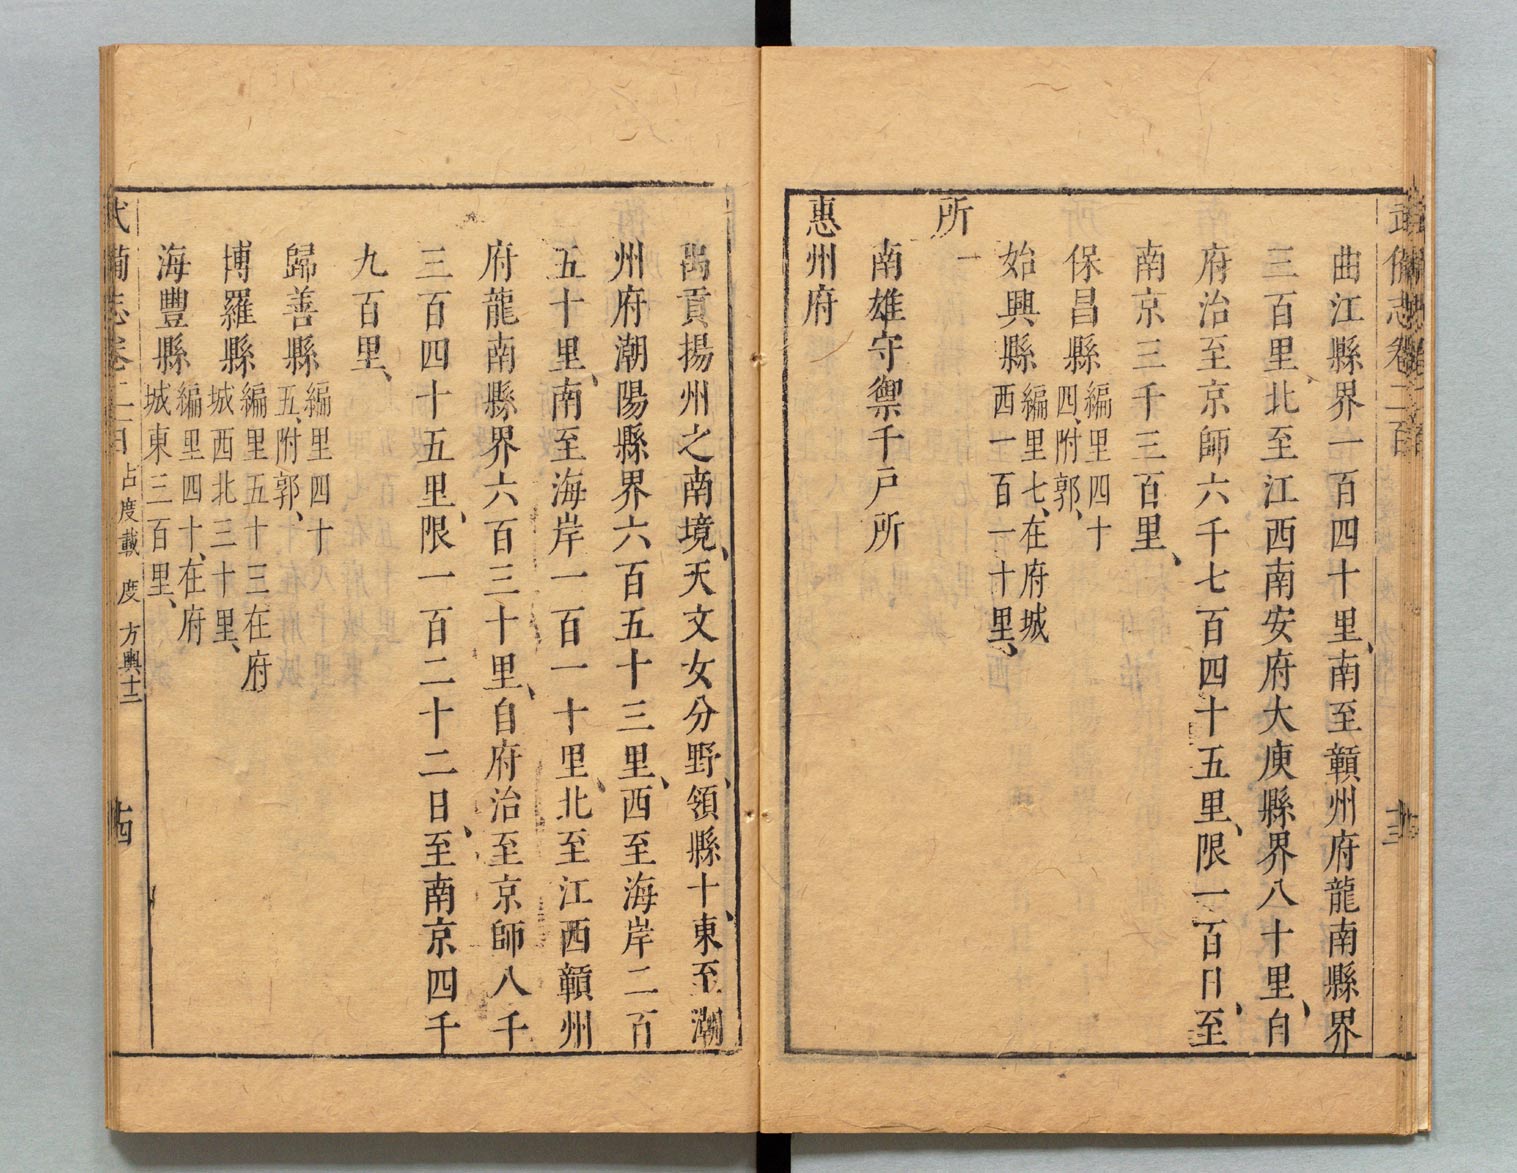 武備志卷二百
曲江縣界一百四十里、南至贑州府龍南縣界
三百里、北至江西南安府大庾縣界八十里、自
府治至京師六千七百四十五里、限一百日、至
南京三千三百里、
保昌縣編里四十
四、附郭、
始興縣編里七、在府城
西一百一十里、
一
所
南雄守禦千戶所
惠州府
禹貢揚州之南境、天文女分野、領縣十、東至潮
州府潮陽縣界六百五十三里、西至海岸二百
五十里、南至海岸一百一十里、北至江西贑州
府龍南縣界六百三十里、自府治至京師八千
三百四十五里、限一百二十二日、至南京四千
九百里、
歸善縣編里四十
五、附郭、
博羅縣編里五十三在府
城西北三十里、
海豐縣編里四十、在府
城東三百里、
武備志卷二百 占度載 度 方輿十二 十四